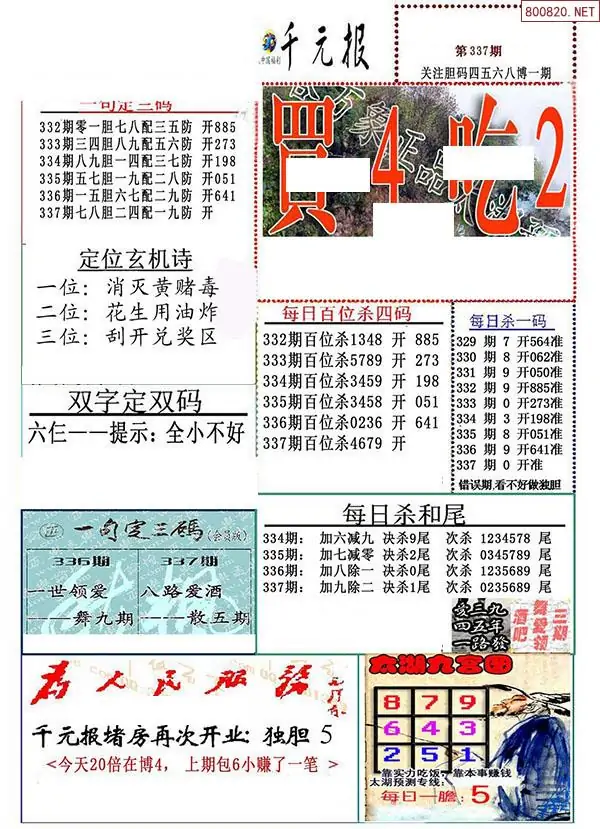 800820.NET
千元报
中国福利
第337期
关注胆码四五六八博一期
一句定三码
332期零一胆七八配三五防 开885
333期三四胆八九配五六防 开273
334期八九胆一四配三七防 开198
335期五七胆一九配二八防 开051
336期一五胆六七配二九防 开641
337期七八胆二四配一九防 开
買4吃2
定位玄机诗
一位: 消灭黄赌毒
二位: 花生用油炸
三位: 刮开兑奖区
每日百位杀四码
332期百位杀1348 开 885
333期百位杀5789 开 273
334期百位杀3459 开 198
335期百位杀3458 开 051
336期百位杀0236 开 641
337期百位杀4679 开
每日杀一码
329 期 7 开564准
330 期 8 开062准
331 期 9 开050准
332 期 9 开885准
333 期 0 开273准
334 期 3 开198准
335 期 8 开051准
336 期 9 开641准
337 期 0 开准
错误期,看不好做独胆
双字定双码
六仨——提示: 全小不好
每日杀和尾
334期: 加六减九 决杀9尾 次杀 1234578 尾
335期: 加七减零 决杀2尾 次杀 0345789 尾
336期: 加八除一 决杀0尾 次杀 1235689 尾
337期: 加九除二 决杀1尾 次杀 0235689 尾
一句定三碼(会员版)
336期 337期
一世领爱 八路爱酒
——舞九期 ——散五期
四五年
一路發
酒吧
舞爱领
三湖
为人民服务
千元报堵房再次开业: 独胆 5
<今天20倍在博4, 上期包6小赚了一笔 >
太湖九宫图
8 7 9
6 4 3
2 5 1
靠实力吃饭,靠本事赚钱
太湖预测专线:
每日一膽: 5